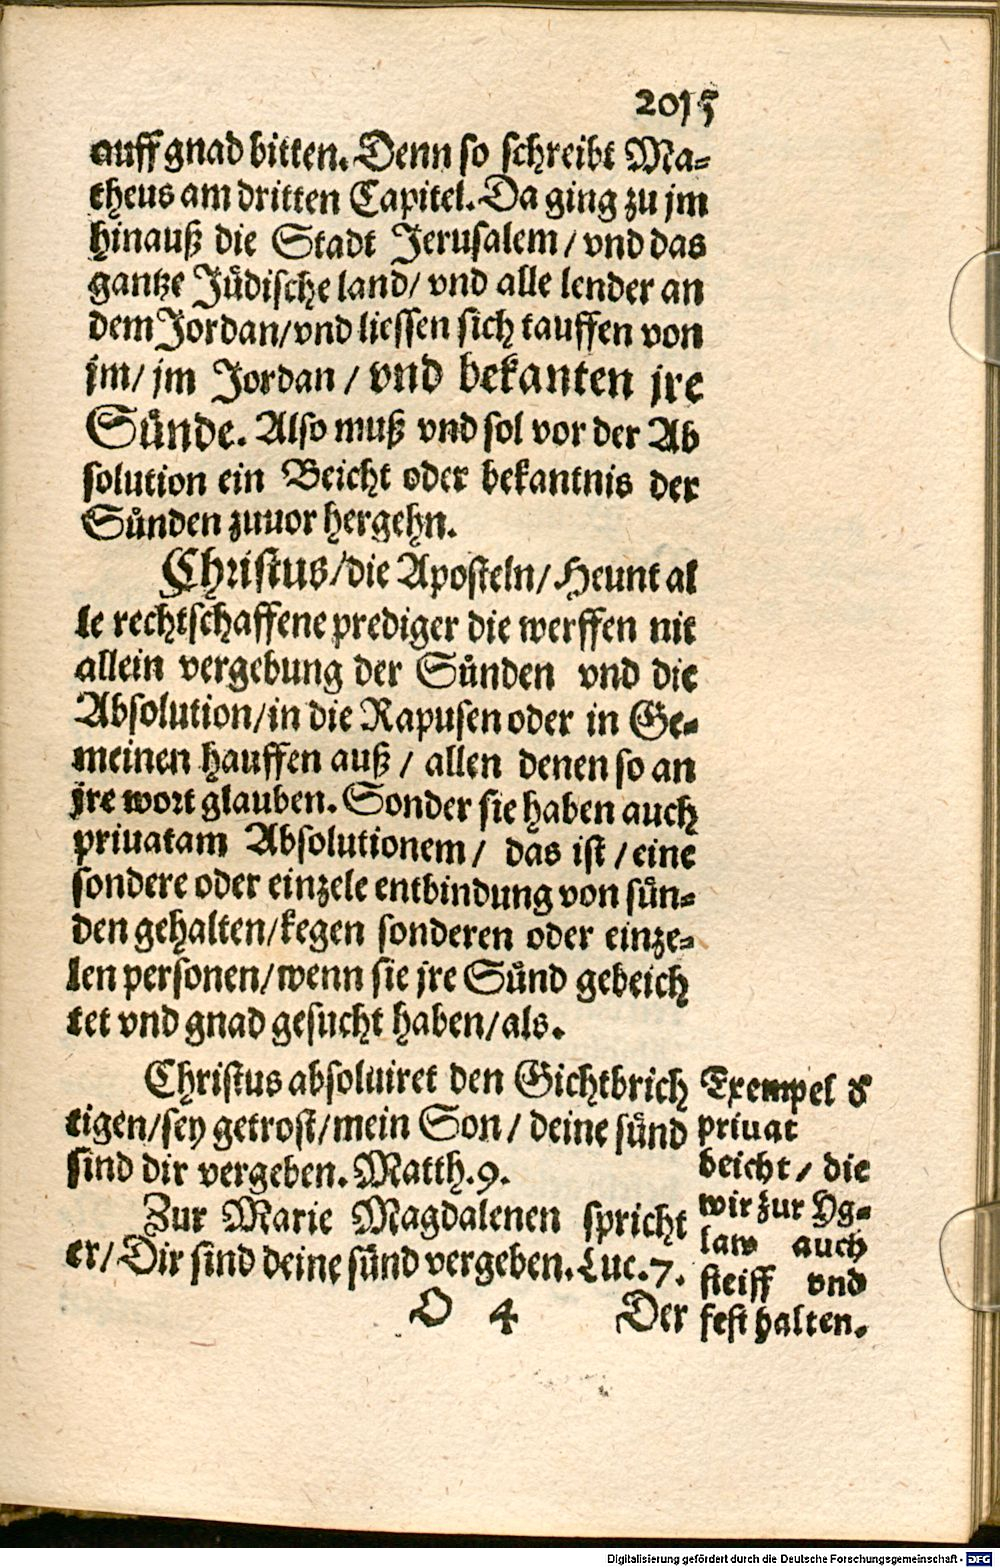 2015
auff gnad bitten. Denn so schreibt Ma-
theus am dritten Capitel. Da ging zu jm
hinauß die Stadt Jerusalem / vnd das
gantze Jüdische land / vnd alle lender an
dem Jordan / vnd liessen sich tauffen von
jm / jm Jordan / vnd bekanten jre
Sünde. Also muß vnd sol vor der Ab
solution ein Beicht oder bekantnis der
Sünden zuuor hergehn.
Christus / die Aposteln / Heunt al
le rechtschaffene prediger die werffen nit
allein vergebung der Sünden vnd die
Absolution / in die Rapusen oder in Ge-
meinen hauffen auß / allen denen so an
jre wort glauben. Sonder sie haben auch
priuatam Absolutionem / das ist / eine
sondere oder einzele entbindung von sün-
den gehalten / kegen sonderen oder einze-
len personen / wenn sie jre Sünd gebeich
tet vnd gnad gesucht haben / als.
Christus absoluiret den Gichtbrich
tigen / sey getrost / mein Son / deine sünd
sind dir vergeben. Matth. 9.
Zur Marie Magdalenen spricht
er / Dir sind deine sünd vergeben. Luc. 7.
Exempel d
priuat
beicht / die
wir zur Yg-
law auch
steiff vnd
fest halten.
O 4 Der
Digitalisierung gefördert durch die Deutsche Forschungsgemeinschaft - DFG